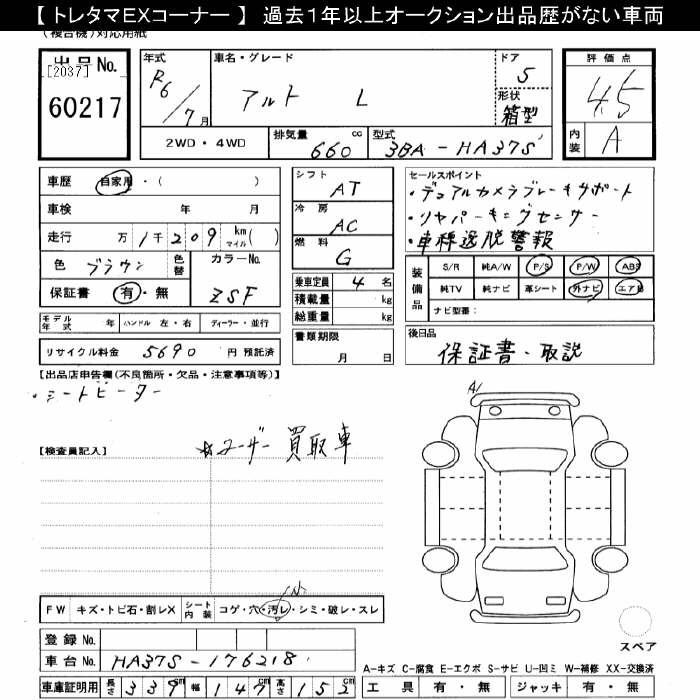 【 トレタマEXコーナー 】 過去1年以上オークション出品歴がない車両
(複合機)対応用紙
出品No.
[2037]
60217
年式
R6/7月
車名・グレード
アルト L
ドア
5
形状
箱型
評価点
4.5
内装
A
2WD・4WD
排気量
660 cc
型式
3BA-HA37S
車歴 自家用・( )
車検 年 月
走行 万 1千209 km マイル( )
色 ブラウン 色替
カラーNo.
ZSF
保証書 有・無
シフト
AT
冷房
AC
燃料
G
乗車定員 4 名
積載量 kg
総重量 kg
書類期限
月 日
セールスポイント
・デュアルカメラブレーキサポート
・リヤパーキングセンサー
・車線逸脱警報
装備品
S/R 純A/W P/S P/W ABS
純TV 純ナビ 革シート 外ナビ エアB
ナビ型番:
後日品
保証書・取説
モデル年式 年 ハンドル 左・右 ディーラー・並行
リサイクル料金 5690 円 預託済
【出品店申告欄(不良箇所・欠品・注意事項等)】
・シートヒーター
【検査員記入】
☆ユーザー買取車
A1
FW キズ・トビ石・割レX シート内装 コゲ・穴・汚レ・シミ・破レ・スレ
登録No.
車台No. HA37S-176218
車庫証明用 長さ 339cm 幅 147cm 高さ 152cm
スペア
A-キズ C-腐食 E-エクボ S-サビ U-凹ミ W-補修 XX-交換済
工具 有・無 ジャッキ 有・無